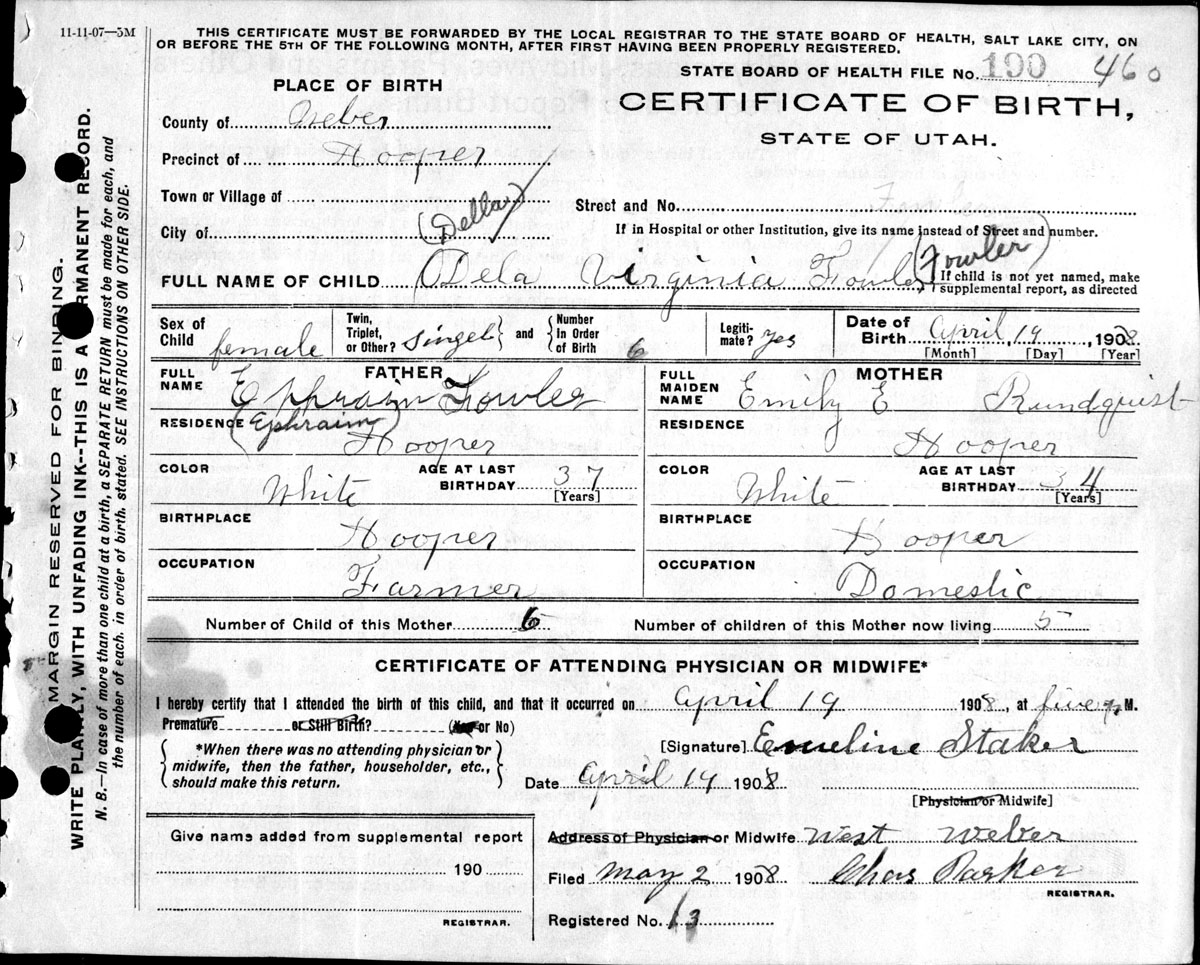 11-11-07—5M
THIS CERTIFICATE MUST BE FORWARDED BY THE LOCAL REGISTRAR TO THE STATE BOARD OF HEALTH, SALT LAKE CITY, ON
OR BEFORE THE 5TH OF THE FOLLOWING MONTH, AFTER FIRST HAVING BEEN PROPERLY REGISTERED.
STATE BOARD OF HEALTH FILE No. 190 460
PLACE OF BIRTH
CERTIFICATE OF BIRTH,
STATE OF UTAH.
County of Weber
Precinct of Hooper
Town or Village of
Street and No. Fowler
City of
(Della)
If in Hospital or other Institution, give its name instead of Street and number.
FULL NAME OF CHILD Dela Virginia Fowler (Fowler)
If child is not yet named, make
supplemental report, as directed
Sex of Child female
Twin, Triplet, or Other? singel and Number In Order of Birth 6
Legitimate? yes
Date of Birth April, 19, 1908.
[Month] [Day] [Year]
FATHER
FULL NAME Ephraim Fowler
(Ephraim)
RESIDENCE Hooper
COLOR White
AGE AT LAST BIRTHDAY 37
[Years]
BIRTHPLACE Hooper
OCCUPATION Farmer
MOTHER
FULL MAIDEN NAME Emily E Rundquist
RESIDENCE Hooper
COLOR White
AGE AT LAST BIRTHDAY 34
[Years]
BIRTHPLACE Hooper
OCCUPATION Domestic
Number of Child of this Mother 6
Number of children of this Mother now living 5
CERTIFICATE OF ATTENDING PHYSICIAN OR MIDWIFE*
I hereby certify that I attended the birth of this child, and that it occurred on April 19 1908, at five M.
Premature or Still Birth? (Yes or No)
*When there was no attending physician or
midwife, then the father, householder, etc.,
should make this return.
[Signature] Emeline Staker
Date April 19 1908
[Physician or Midwife]
Give name added from supplemental report
190
REGISTRAR.
Address of Physician or Midwife West Weber
Filed May 2 1908 Chas Parker
REGISTRAR.
Registered No. 13
MARGIN RESERVED FOR BINDING.
WRITE PLAINLY, WITH UNFADING INK--THIS IS A PERMANENT RECORD.
N. B.—In case of more than one child at a birth, a SEPARATE RETURN must be made for each, and
the number of each, in order of birth, stated. SEE INSTRUCTIONS ON OTHER SIDE.